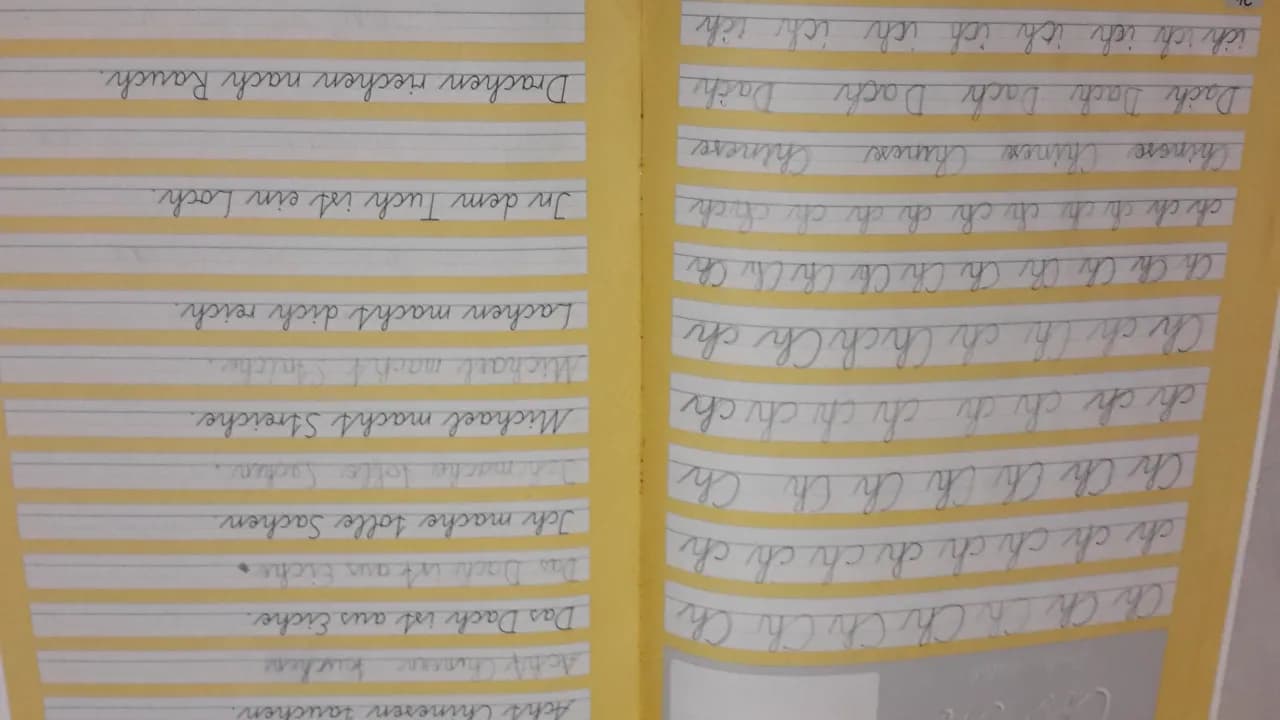 Ch Ch Ch Ch Ch Ch Ch Ch
ch ch ch ch ch ch ch ch ch
Ch Ch Ch Ch Ch Ch Ch Ch
ch ch ch ch ch ch ch ch ch
Ch ch Ch Ch ch Ch ch Ch ch
Ch Ch Ch Ch Ch Ch Ch Ch Ch Ch
ch ch ch ch ch ch ch ch ch ch ch
Chinese Chinese Chinese Chinese Chinese
Dach Dach Dach Dach Dach Dach
ich ich ich ich ich ich ich ich ich
Acht Chinesen tauchen.
Acht Chinesen tauchen
Das Dach ist aus Eiche.
Das Dach ist aus Eiche.
Ich mache tolle Sachen.
Ich mache tolle Sachen.
Michael macht Streiche.
Michael macht Streiche.
Lachen macht dich reich.
In dem Tuch ist ein Loch.
Drachen riechen nach Rauch.